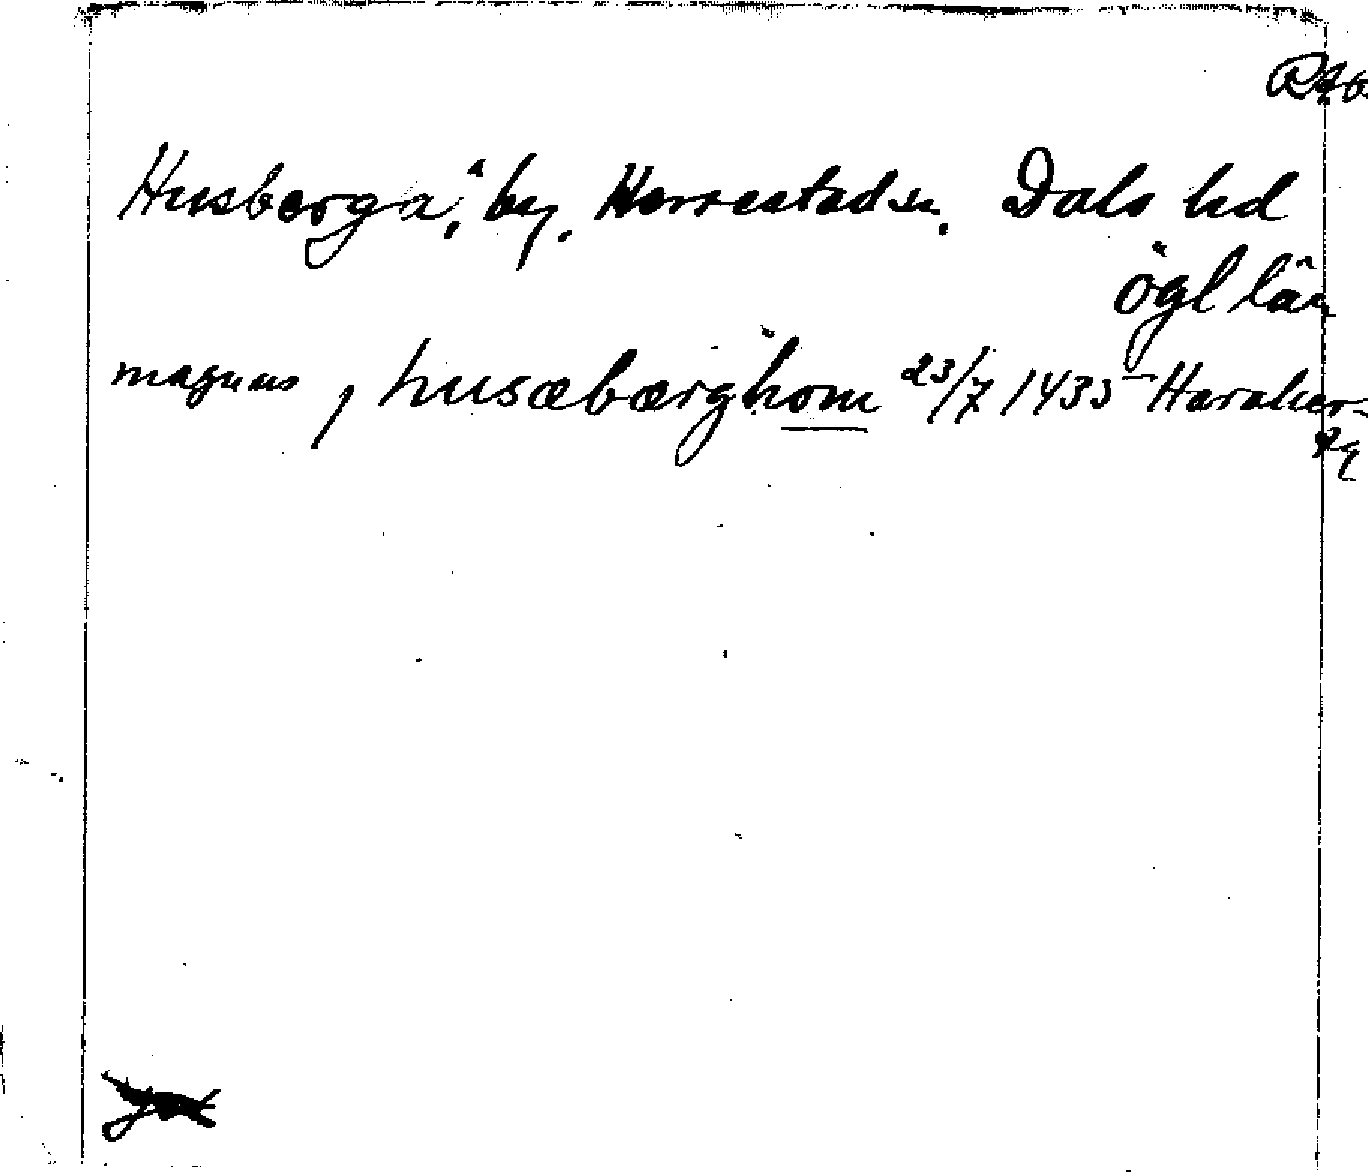 Husberga, by. Herrestad sn. Dals hd
ögl län
magnus j husæbærghom 23/7 1435 Haraker-